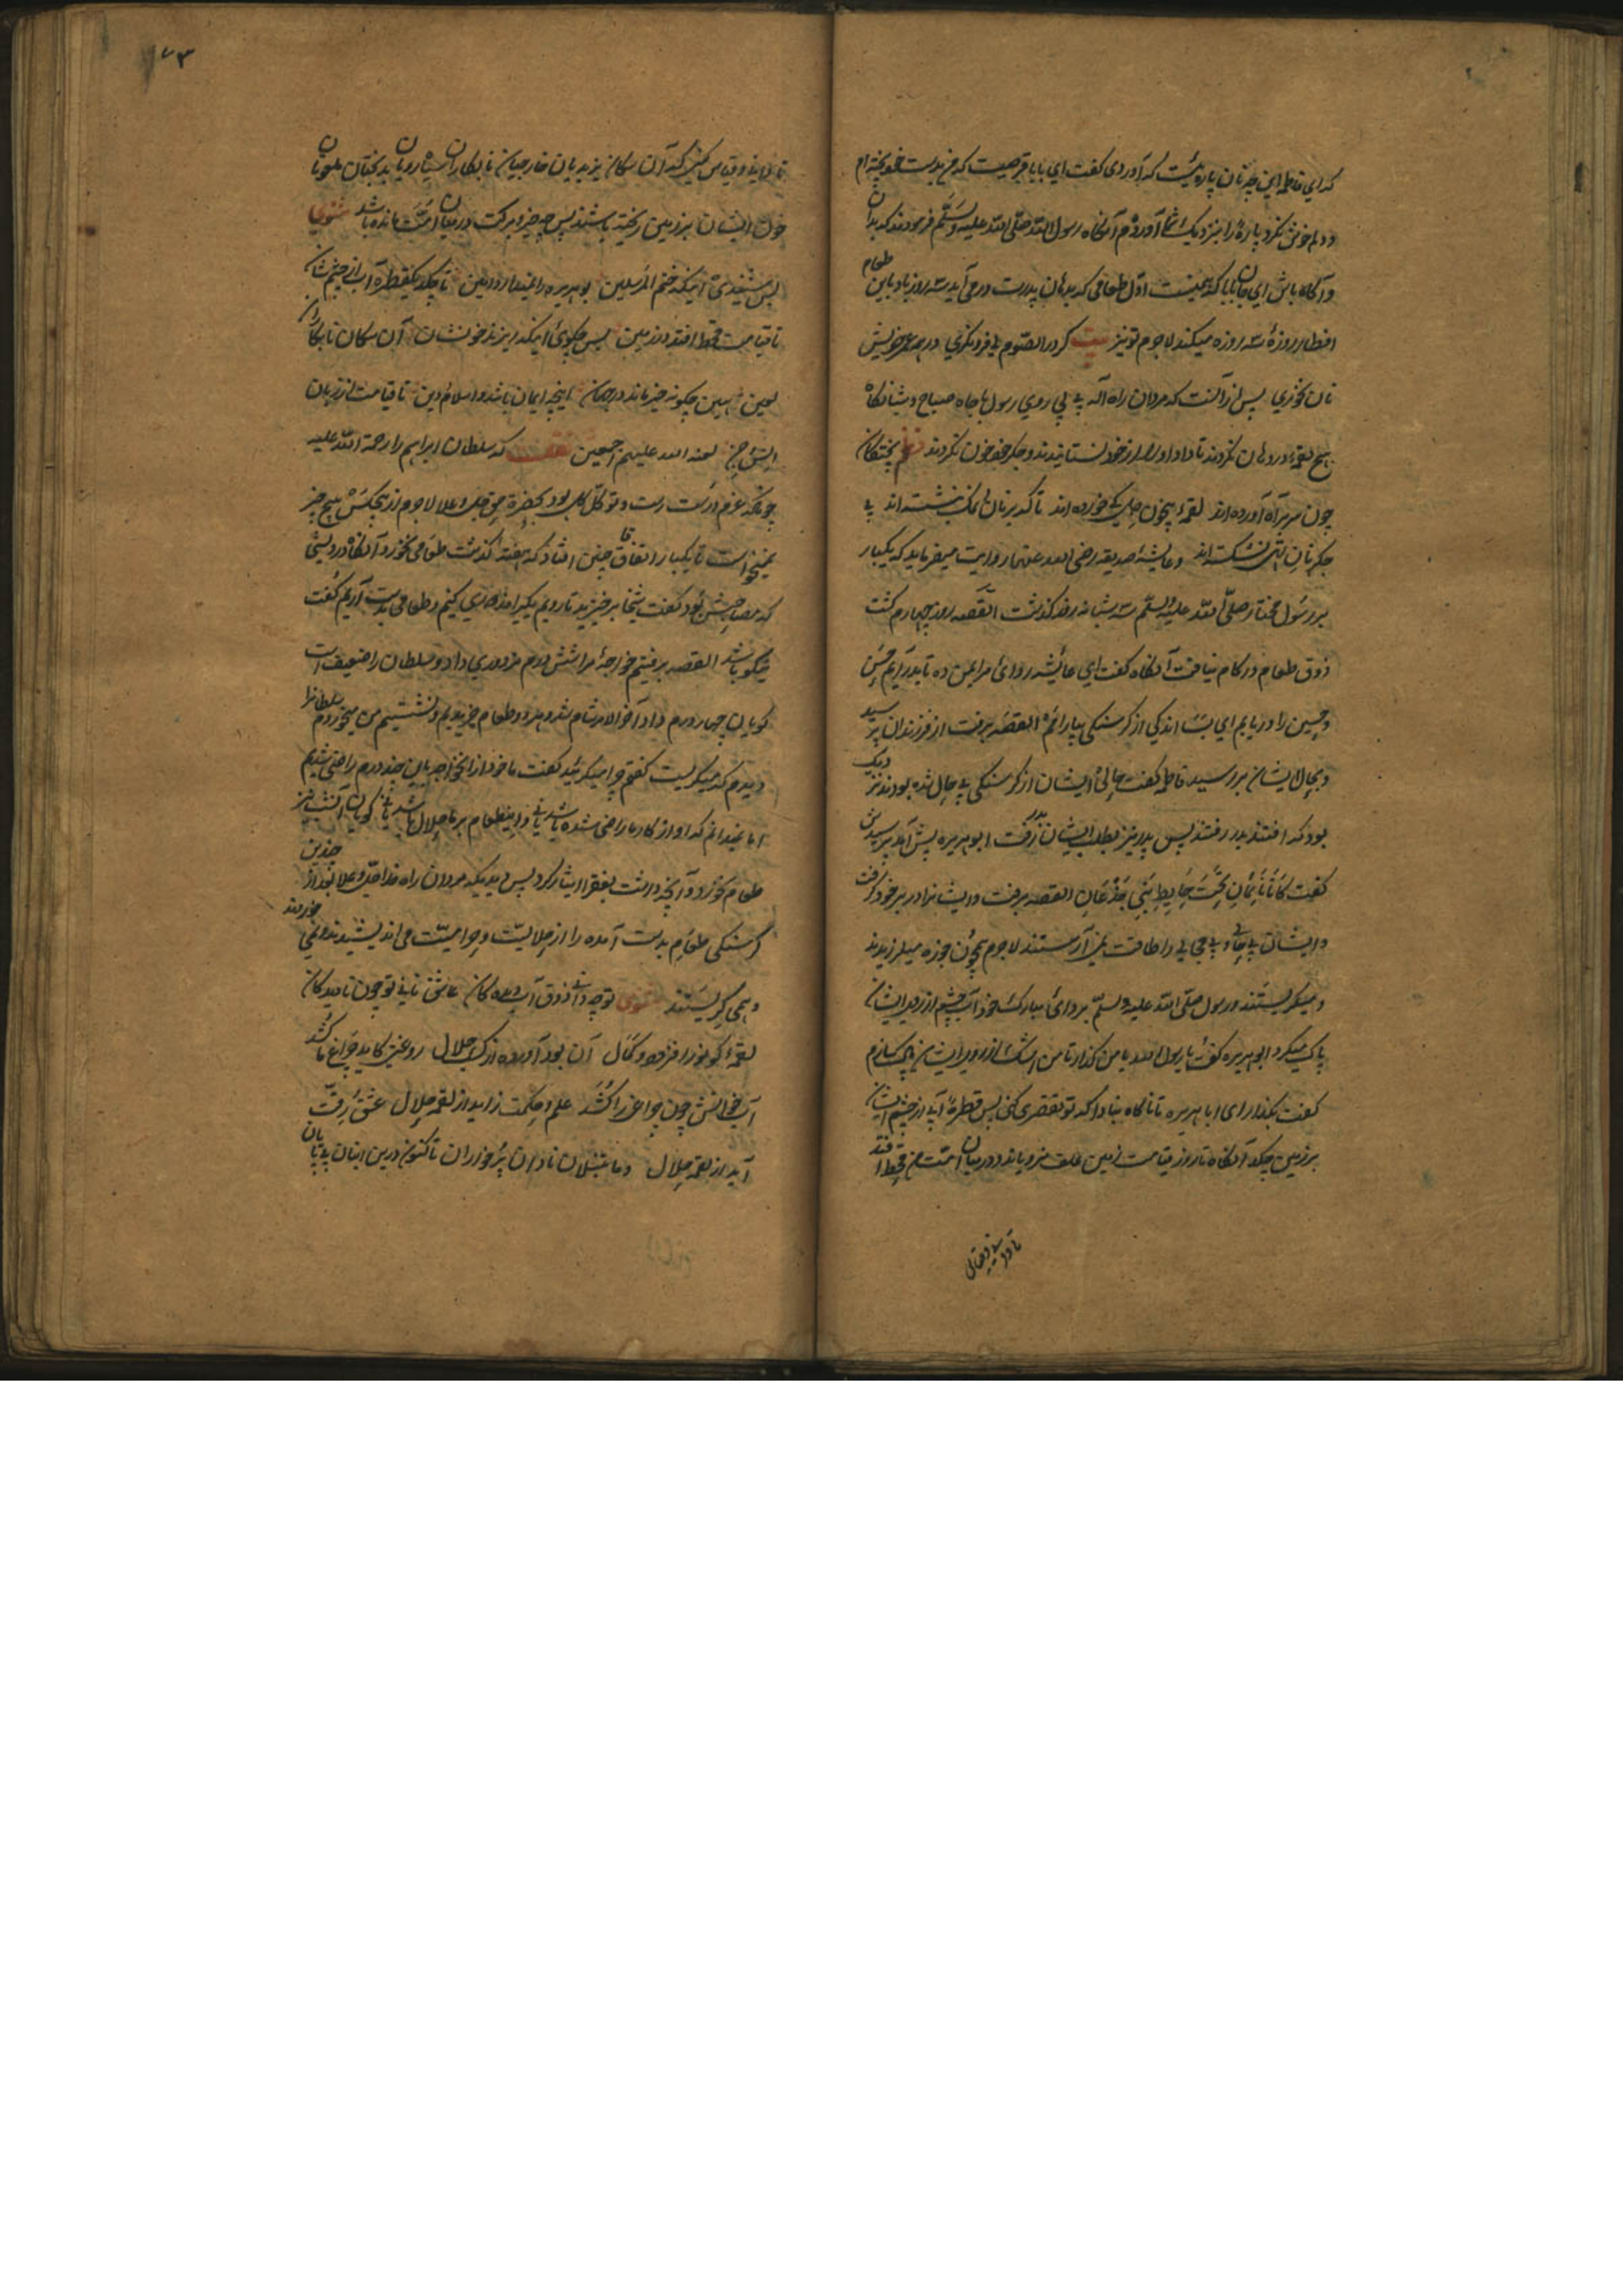 که ای فاطمه این چه نان پاره ئیست که آوردی گفت ای بابا قرصیست که من بدست خود پخته ام
و دلم خوش نکرد پارهٔ را بنزدیک شما آوردم آنگاه رسول الله صلی الله علیه وسلم فرمودند که بدان
و آگاه باش ای جان بابا که همینست اول طعامی که بدهان پدرت در می آید سه روز باد باین طعام
افطار روزهٔ سه روزه میکند لاجرم تو نیز بیت کرد الصوم لی فرو نکری در همه عمر خویش
نان نخوری پس از آنست که مردان راه اله پی پی روی رسول با جاه صباح و شبانگاه
هیچ لقمهٔ در دهان نکردند تا داد او را از خود نستانیدند و جگر خود خون نکردند نظم پختگان
چون سر براه آورده اند لقمهٔ بیخون جگر کی خورده اند تا که بر نان نمک بنشسته اند بی
جگر نان تهی نشکسته اند و عایشهٔ صدیقه رضی الله عنها روایت میفرماید که یکبار
بر رسول مختار صلی الله علیه وسلم سه شبانه روز گذشت القصه روز چهارم گشت
ذوق طعام در کام نیافت آنگاه گفت ای عائشه ردای مرا بمن ده تا بدر آیم حسن
و حسین را دریابم ای بسا اندکی از گرسنگی بیارائم القصه برفت از فرزندان پرسید
و بحال ایشان بررسید فاطمه گفت حالی ایشان از گرسنگی بی حال شده بودند نزدیک
بود که افتند بدر رفتند پس پدر نیز بطلب ایشان بدر رفت ابوهریره پیش آمد پرسیدش
گفت کانا نائمان تحت حایط بنی جذعان القصه برفت و ایشانرا در بر خود گرفت
و ایشان بی جانی و بی مجالی را طاقت نمی آرستند لاجرم همچون جوزه میلرزیدند
و میگریستند و رسول صلی الله علیه وسلم بردای مبارک خود آب چشم از روی ایشان
پاک میکرد ابوهریره گفت یا رسول الله با من گذار تا من اشک از روی ایشان پاک سازم
گفت بگذار ای اباهریره تا ناگاه مبادا که تو تقصیری کنی پس قطرهٔ آب از چشم ایشان
بر زمین چکد آنگاه تا روز قیامت زمین علف نرویاند و در میان امت من قحط افتد
تا در آید و قیاس کنید که آن سگان یزیدیان خارجیان نابکاران سیاه رویان بدبختان ملعونان
خون ایشان بر زمین ریخته باشند پس چه خیر و برکت در میان امت مانده باشد مثنوی
پس شنیدی آنکه ختم المرسلین بوهریره را نمیدارد امین تا چکد یکقطره آب از چشم شان
تا قیامت قحط افتد در زمین پس چگوئی آنکه ریزند خونشان آن سگان نابکاران
لعین ببین چگونه خیر ماند در جهان اینچه ایمان باشد و اسلام و دین تا قیامت از زبان
لعنة الله علیهم اجمعین که سلطان ابراهیم را رحمة الله علیه
چونکه عزم درست و توکل کلی بود بحضرة حق جل وعلا لاجرم از هیچکس هیچ چیز
نمیخواست تا یکبار اتفاقا چنین افتاد که هفتهٔ گذشت طعامی نخورد آنگاه درویشی
که مصاحبش بود گفت شیخا برخیزید تا رویم یکی امزدوری کنیم و طعامی بدست آریم گفت
نیکو باشد القصه برفتیم خواجهٔ مرا شش درم مزدوری داد و سلطان را ضعیف است
گویان چهار درم داد آخر الامر شام شد و هر دو طعام خریدیم و نشستیم من میخوردم سلطانرا
دیدم که میگریست گفتم چرا میگریئید گفت ما خود از انخواجه باین چند درم راضی شدیم
اما نمیدانم که او از کار ما راضی شده باشد یا نی و اینطعام بر ما حلال باشد یا نی گویان
طعام نخورد و آنچه داشت بفقرا ایثار کرد پس ببینید که مردان راه خدا جل وعلا بعد از چندین
گرسنگی طعام بدست آمده را از حلالیت و حرامیت می اندیشیدند و نمی خوردند
و همی گریستند مثنوی تو چه دانی ذوق آب دیدگان عاشق نانی تو چون نادیدگان
لقمهٔ کو نور افزود و کمال آن بود آورده از کسب حلال روغنی کاید چراغ ما کشد
آب خوانش چون چراغی را کشد علم و حکمت زاید از لقمه حلال عشق و رقت
آید از لقمه حلال و ما تنبلان نادان پرخواران تا کنون درین انبان بی پایان